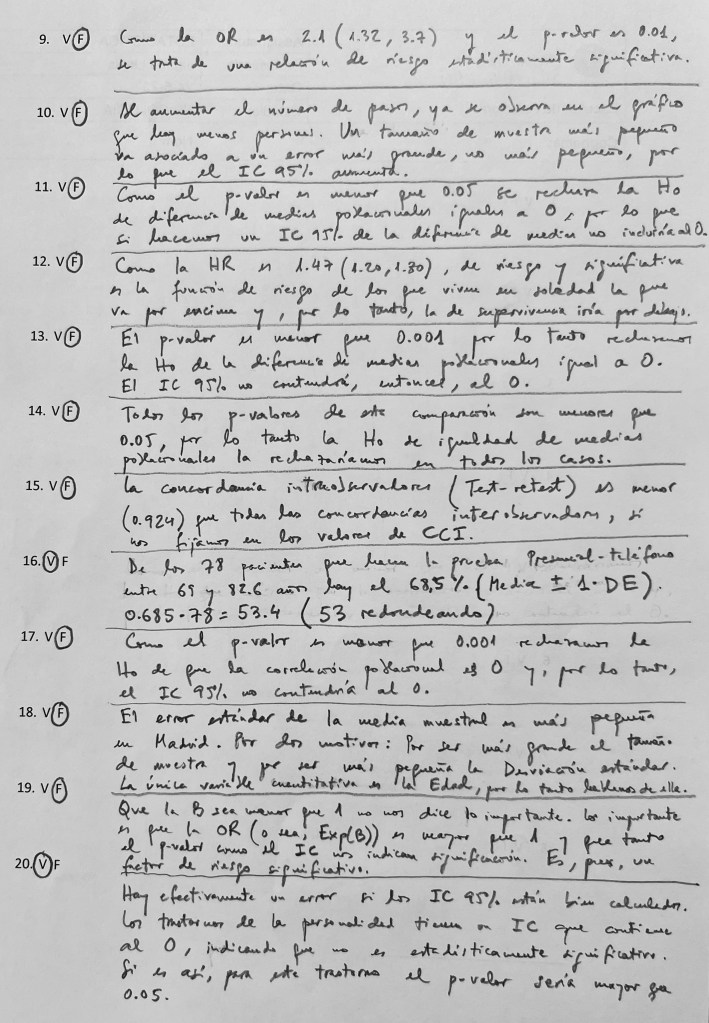 9. V F Como la OR es 2.1 (1.32, 3.7) y el p-valor es 0.01,
se trata de una relación de riesgo estadísticamente significativa.
10. V F Al aumentar el número de pasos, ya se observa en el gráfico
que hay menos personas. Un tamaño de muestra más pequeño
va asociado a un error más grande, no más pequeño, por
lo que el IC 95% aumenta.
11. V F Como el p-valor es menor que 0.05 se rechaza la Ho
de diferencia de medias poblacionales iguales a 0, por lo que
si hacemos un IC 95% de la diferencia de medias no incluiría al 0.
12. V F Como la HR es 1.47 (1.20, 1.80), de riesgo y significativa
es la función de riesgo de los que viven en soledad la que
va por encima y, por lo tanto, la de supervivencia iría por debajo.
13. V F El p-valor es menor que 0.001 por lo tanto rechazamos
la Ho de la diferencia de medias poblacionales igual a 0.
El IC 95% no contendrá, entonces, al 0.
14. V F Todos los p-valores de esta comparación son menores que
0.05, por lo tanto la Ho de igualdad de medias
poblacionales la rechazaríamos en todos los casos.
15. V F La concordancia intraobservadores (Test-retest) es menor
(0.924) que todas las concordancias interobservadores, si
nos fijamos en los valores de CCI.
16. V F De los 78 pacientes que hacen la prueba Presencial-teléfono
entre 69 y 82.6 años hay el 68,5% (Media ± 1·DE).
0.685·78 = 53.4 (53 redondeando)
17. V F Como el p-valor es menor que 0.001 rechazamos la
Ho de que la correlación poblacional es 0 y, por lo tanto,
el IC 95% no contendría al 0.
18. V F El error estándar de la media muestral es más pequeña
en Madrid. Por dos motivos: Por ser más grande el tamaño
de muestra y por ser más pequeña la Desviación estándar.
La única variable cuantitativa es la Edad, por lo tanto hablamos de ella.
19. V F Que la B sea menor que 1 no nos dice lo importante. Lo importante
es que la OR (o sea, Exp(B)) es mayor que 1 y que tanto
el p-valor como el IC nos indican significación. Es, pues, un
factor de riesgo significativo.
20. V F Hay efectivamente un error si los IC 95% están bien calculados.
Los trastornos de la personalidad tienen un IC que contiene
al 0, indicando que no es estadísticamente significativo.
Si es así, para este trastorno el p-valor sería mayor que
0.05.